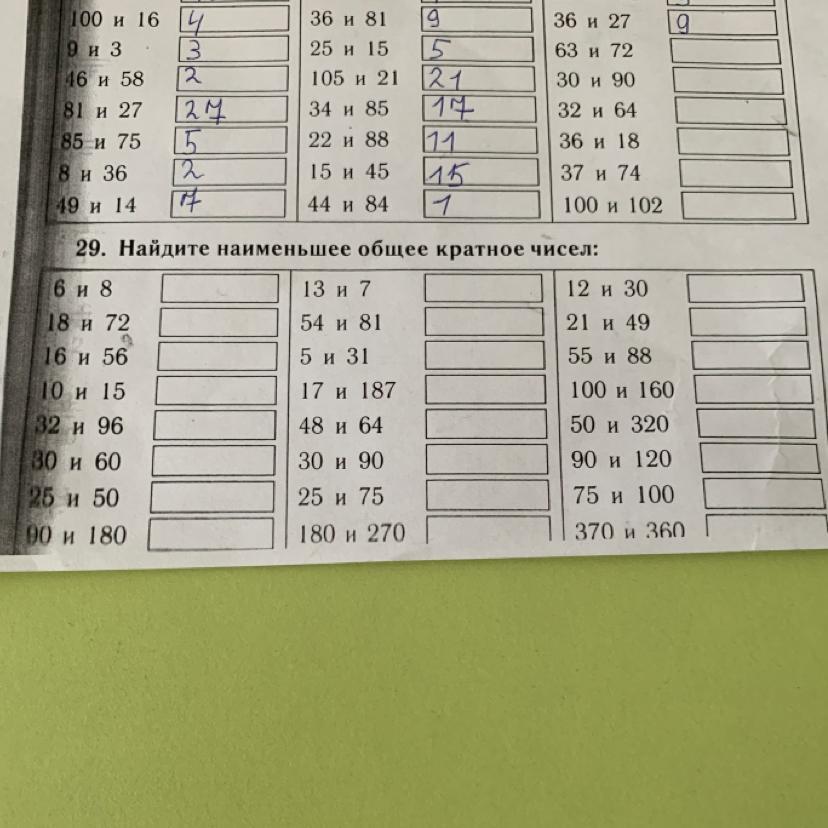 100 и 16 4 36 и 81 9 36 и 27 9
9 и 3 3 25 и 15 5 63 и 72
46 и 58 2 105 и 21 21 30 и 90
81 и 27 27 34 и 85 17 32 и 64
85 и 75 5 22 и 88 11 36 и 18
8 и 36 2 15 и 45 15 37 и 74
49 и 14 7 44 и 84 1 100 и 102
29. Найдите наименьшее общее кратное чисел:
6 и 8 13 и 7 12 и 30
18 и 72 54 и 81 21 и 49
16 и 56 5 и 31 55 и 88
10 и 15 17 и 187 100 и 160
32 и 96 48 и 64 50 и 320
30 и 60 30 и 90 90 и 120
25 и 50 25 и 75 75 и 100
90 и 180 180 и 270 370 и 360